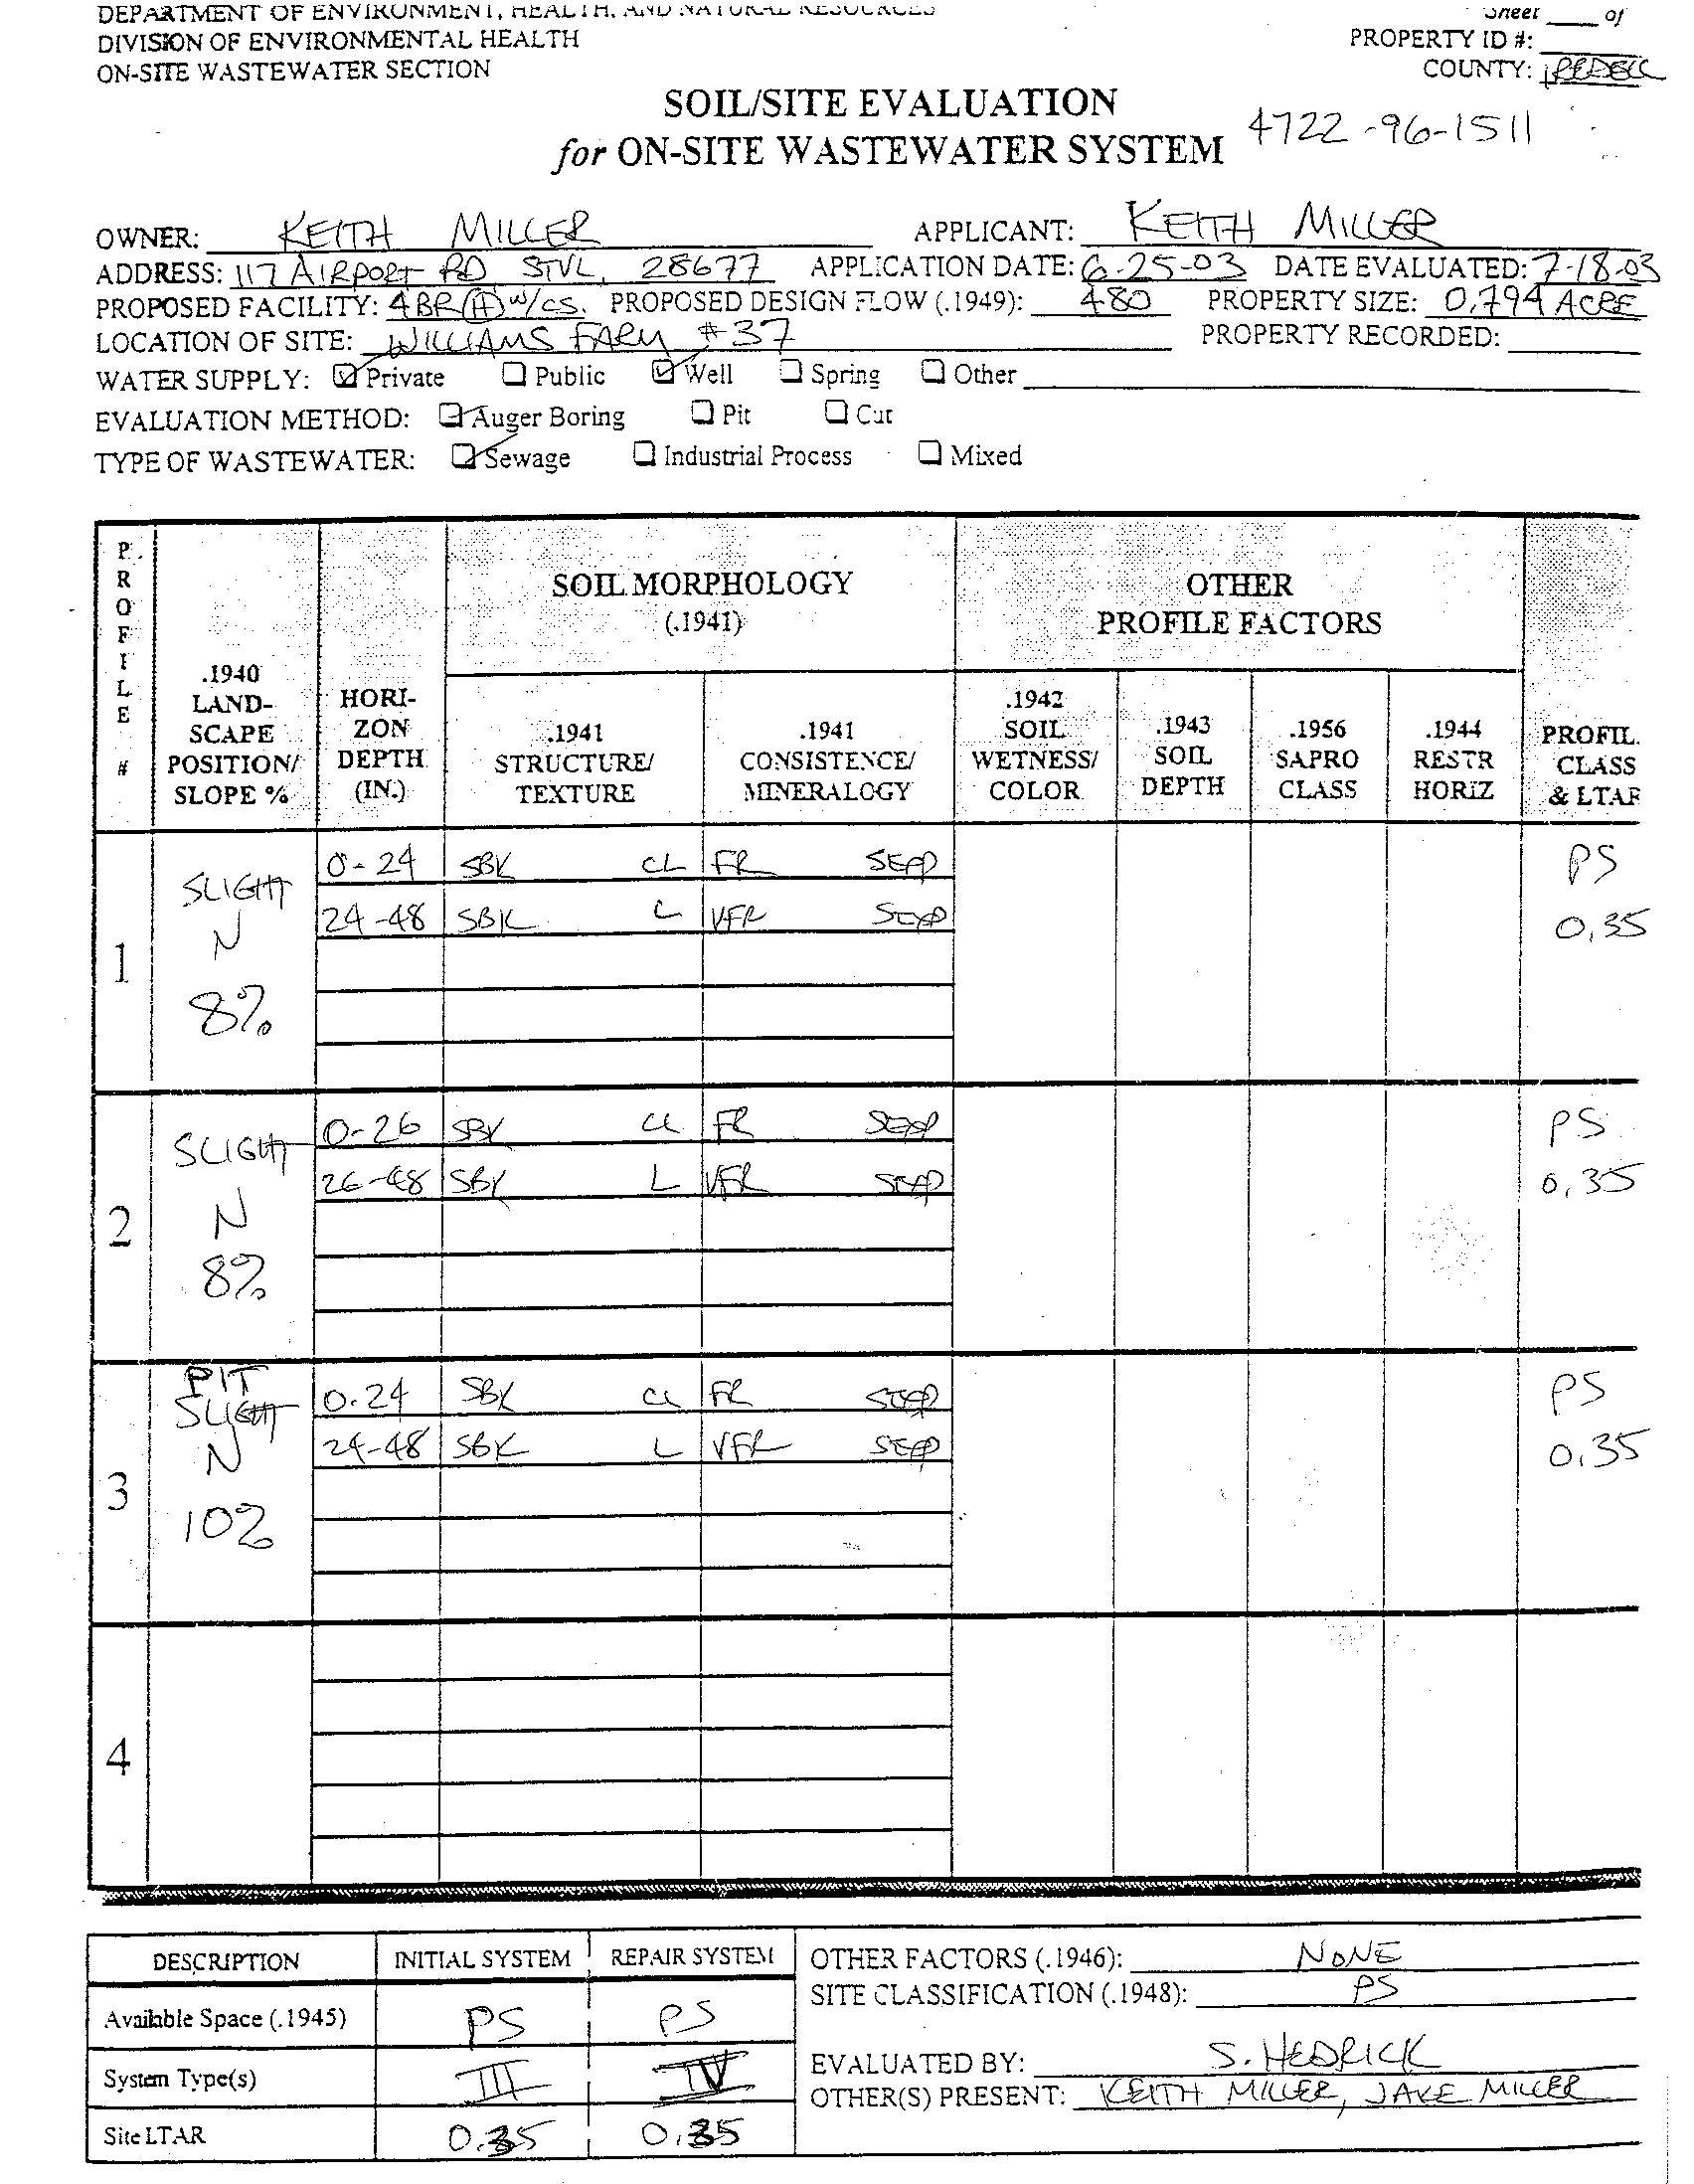 DEPARTMENT OF ENVIRONMENT, HEALTH, AND NATURAL RESOURCES
Sheet ____ of
DIVISION OF ENVIRONMENTAL HEALTH
PROPERTY ID #:
ON-SITE WASTEWATER SECTION
COUNTY: IREDELL
SOIL/SITE EVALUATION
for ON-SITE WASTEWATER SYSTEM
4722-96-1511
OWNER: KEITH MILLER APPLICANT: KEITH MILLER
ADDRESS: 117 AIRPORT RD STVL, 28677 APPLICATION DATE: 6-25-03 DATE EVALUATED: 7-18-03
PROPOSED FACILITY: 4BR (H) w/cs. PROPOSED DESIGN FLOW (.1949): 480 PROPERTY SIZE: 0.794 ACRE
LOCATION OF SITE: WILLIAMS FARM #37 PROPERTY RECORDED:
WATER SUPPLY: Private Public Well Spring Other
EVALUATION METHOD: Auger Boring Pit Cut
TYPE OF WASTEWATER: Sewage Industrial Process Mixed
PROFILE #
.1940 LAND-SCAPE POSITION/ SLOPE %
HORI-ZON DEPTH (IN.)
SOIL MORPHOLOGY
(.1941)
.1941 STRUCTURE/ TEXTURE
.1941 CONSISTENCE/ MINERALOGY
OTHER
PROFILE FACTORS
.1942 SOIL WETNESS/ COLOR
.1943 SOIL DEPTH
.1956 SAPRO CLASS
.1944 RESTR HORIZ
PROFIL. CLASS & LTAR
1
SLIGHT
N
8%
0-24 SBK CL FR SEXP
24-48 SBK C VFR SEXP
PS
0.35
2
SLIGHT
N
8%
0-26 SBK CL FR SEXP
26-48 SBK L VFR SEXP
PS
0.35
3
PIT
SLIGHT
N
10%
0-24 SBK CL FR SEXP
24-48 SBK L VFR SEXP
PS
0.35
4
DESCRIPTION INITIAL SYSTEM REPAIR SYSTEM
Available Space (.1945) PS PS
System Type(s) III IV
Site LTAR 0.35 0.35
OTHER FACTORS (.1946): NONE
SITE CLASSIFICATION (.1948): PS
EVALUATED BY: S. HEDRICK
OTHER(S) PRESENT: KEITH MILLER, JAKE MILLER